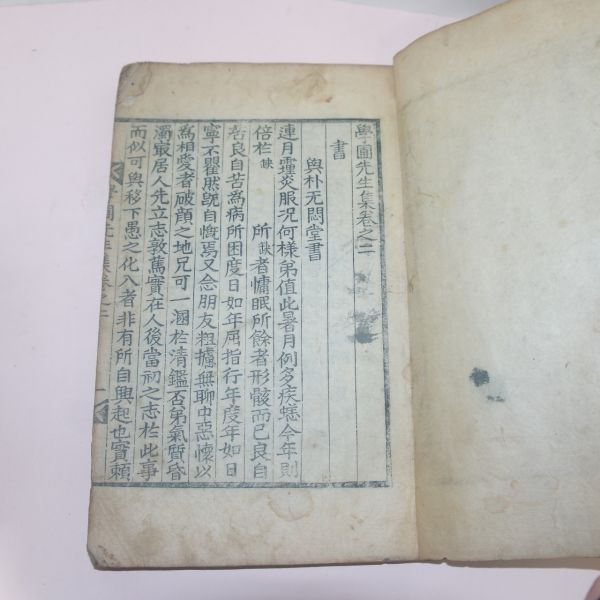 學圃先生集卷之二
書
與朴无悶堂書
連月霾炎服況何樣弟值此暑月例多疾恙今年則
倍於缺 所缺者慵眠所餘者形骸而已良自
苦良自苦爲病所困度日如年屈指行年度年如日
寧不瞿然旣自慨焉又念朋友粗攄無聊中惡懷以
爲相愛者破顔之地兄可一溷於淸鑑否弟氣質昏
濁最居人先立志敦篤實在人後當初之志於此事
而似可與移下愚之化入者非有所自興起也實賴
學圃先生集卷之二